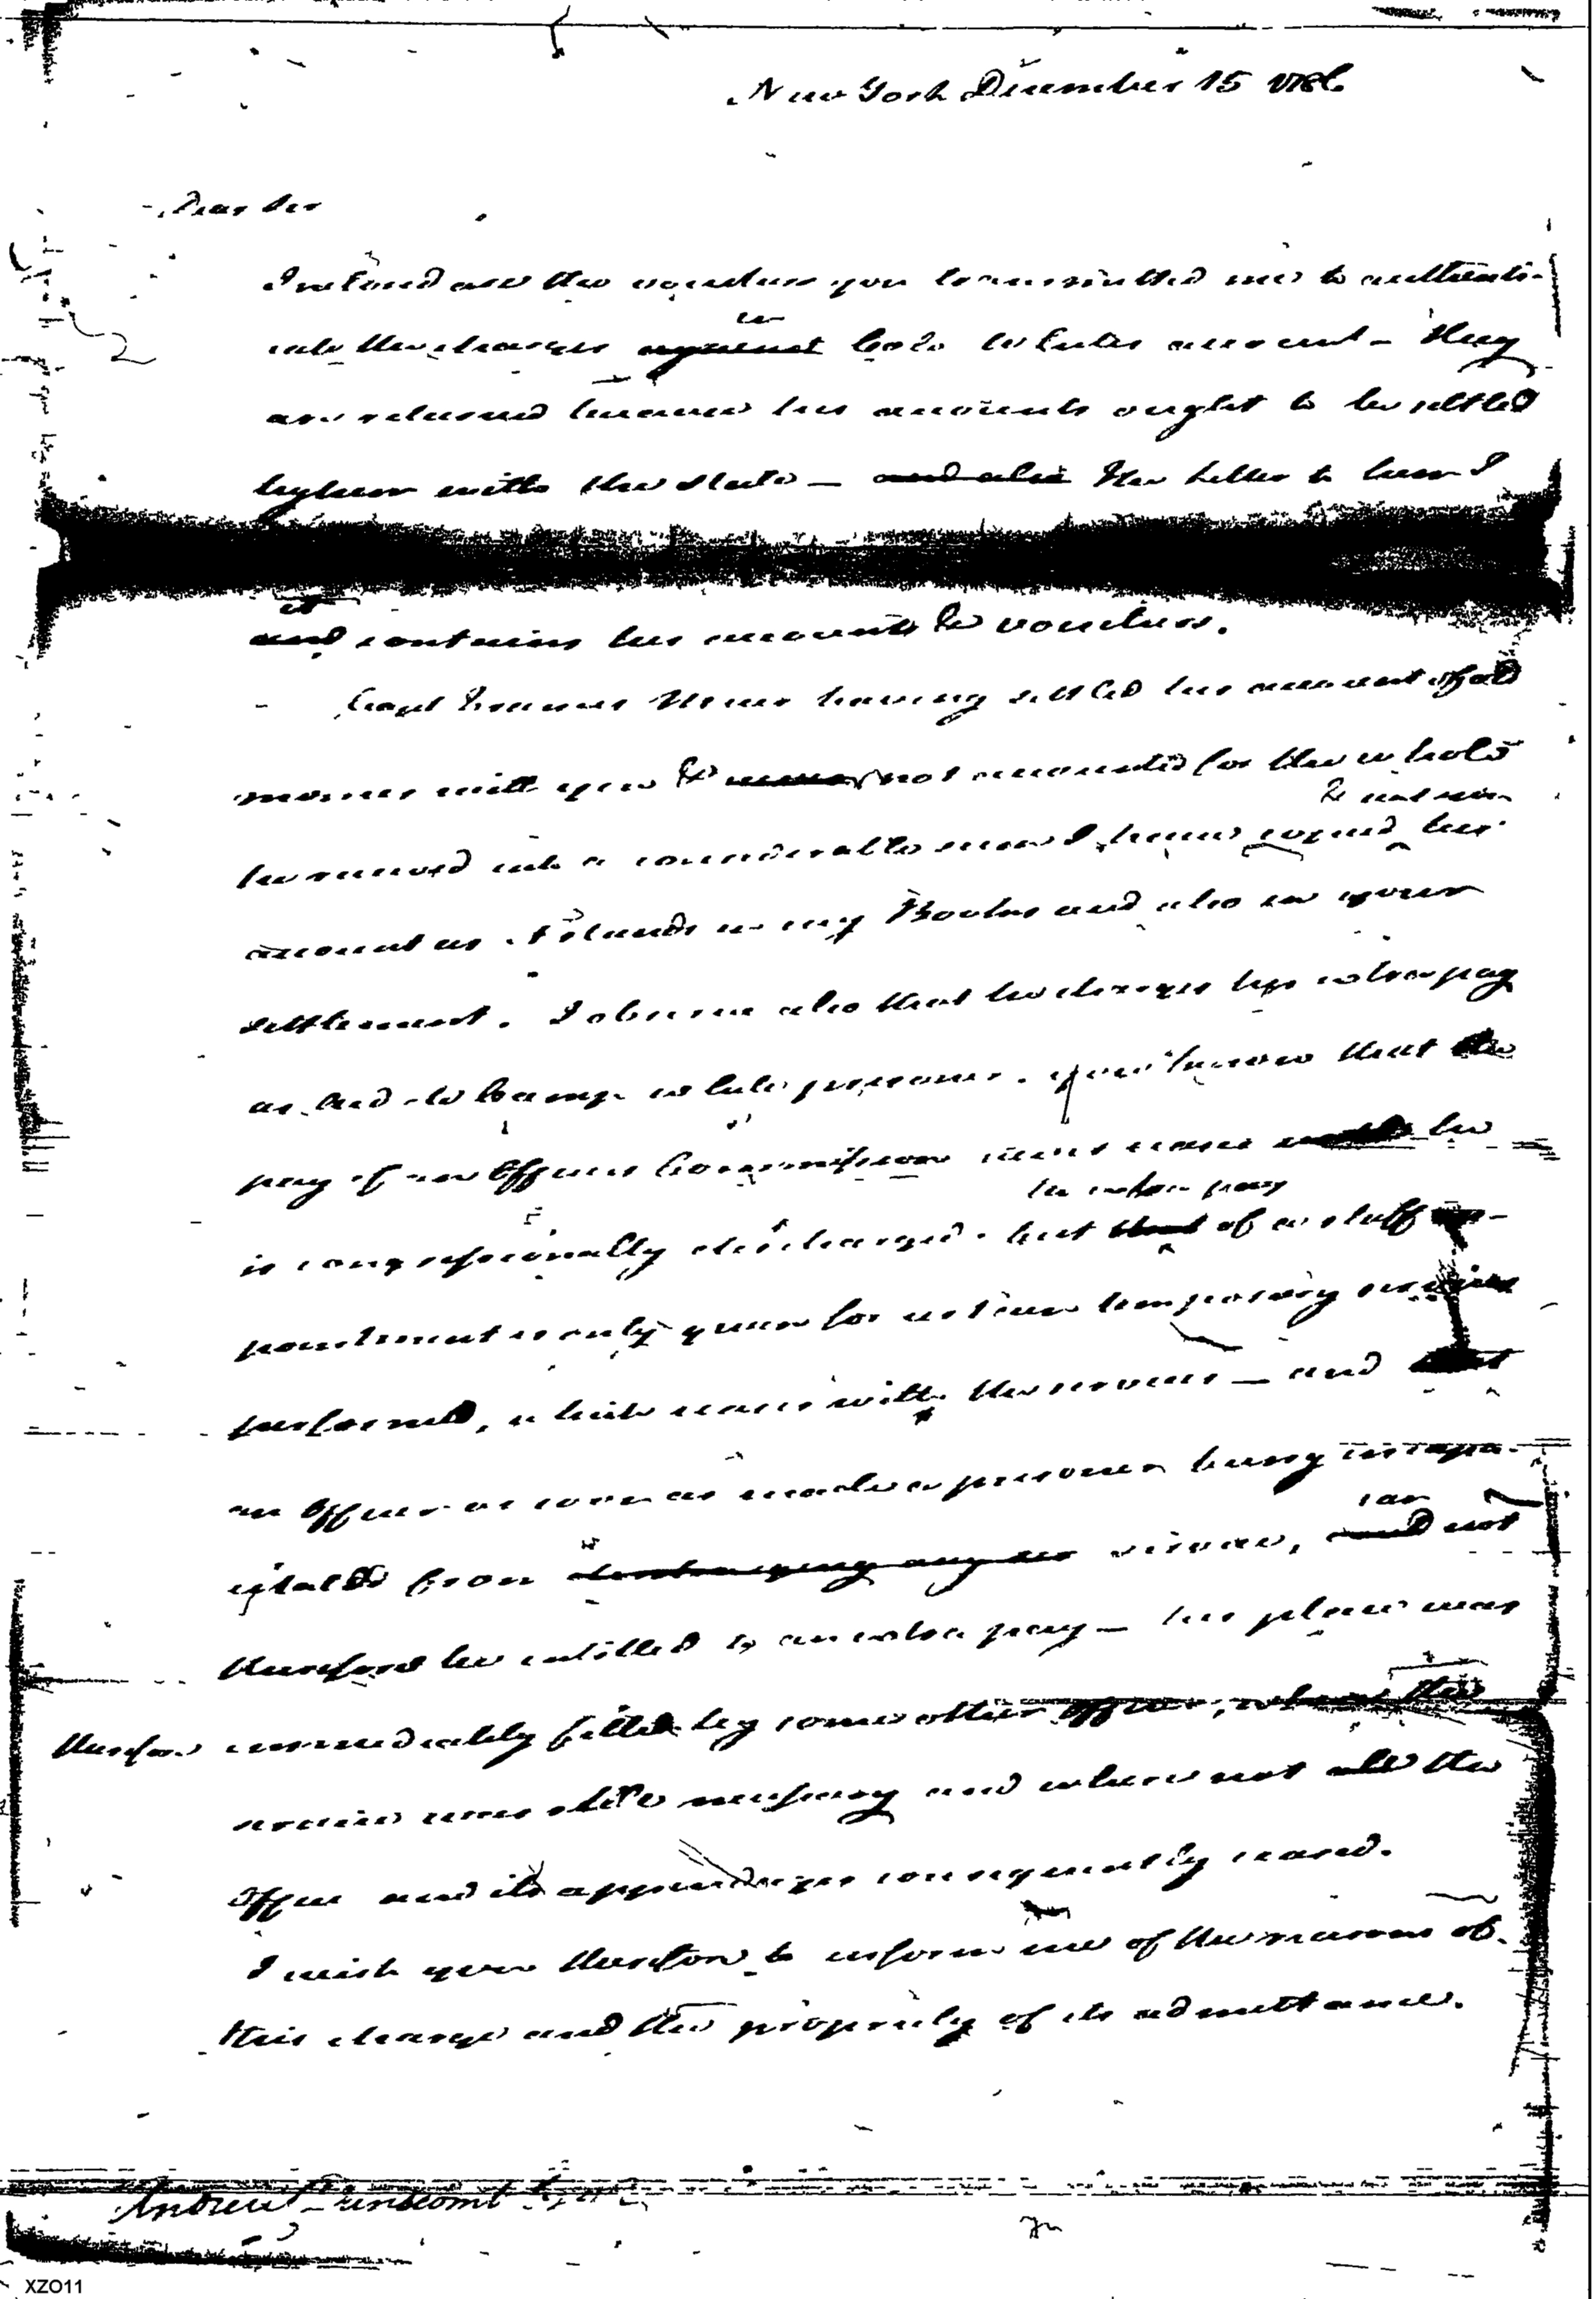 New York December 15 1786
Dear Sir
Inclosed are the vouchers you transmitted me to authenti-
cate the charges against in Colo Whites account - they
are returned because his accounts ought to be settled
by him with the State - and also the letter to him I
it
and contains his accounts & vouchers.
Capt Francis having settled his account of old
monies with you & not accounted for the whole
he received into a considerable sum I have copied & inclose his
account as it stands in my Books and also in your
settlement. I observe also that he charges his extra pay
as Aid de Camp while prisoner. you know that the
pay of an Officers Commission never ceases he
is congressionally discharged. but that the extra pay of a staff ap-
pointment is only given for actual temporary service
performed, which ceases with the service - and
an Officer as soon as made a prisoner being incapa-
citated from service, can and not
therefore be entitled to an extra pay - his place was
therefore immediately filled by some other officer, where the
service was still necessary and where not all the
Office and its appendages consequently ceased.
I wish you therefore to inform me of the reasons of
this charge and the propriety of its admittance.
Andrew Dunscomb Esqr
XZO11